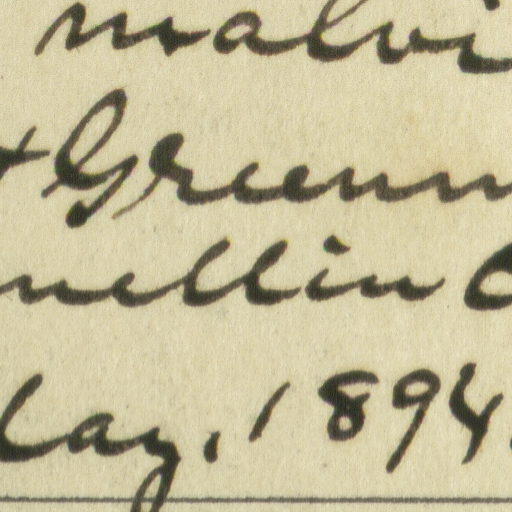 malvi
Greenn
nellin
lay, 1894.